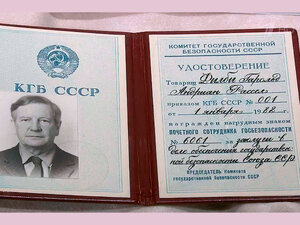 КГБ СССР
КОМИТЕТ ГОСУДАРСТВЕННОЙ
БЕЗОПАСНОСТИ СССР
УДОСТОВЕРЕНИЕ
Товарищ Филби Гарольд
Адриан Рассел
приказом КГБ СССР № 001
от 1 января 1982
награжден нагрудным знаком
ПОЧЕТНОГО СОТРУДНИКА ГОСБЕЗОПАСНОСТИ
№ 6061 за заслуги в
деле обеспечения государствен
ной безопасности Союза ССР
ПРЕДСЕДАТЕЛЬ Комитета
государственной безопасности СССР